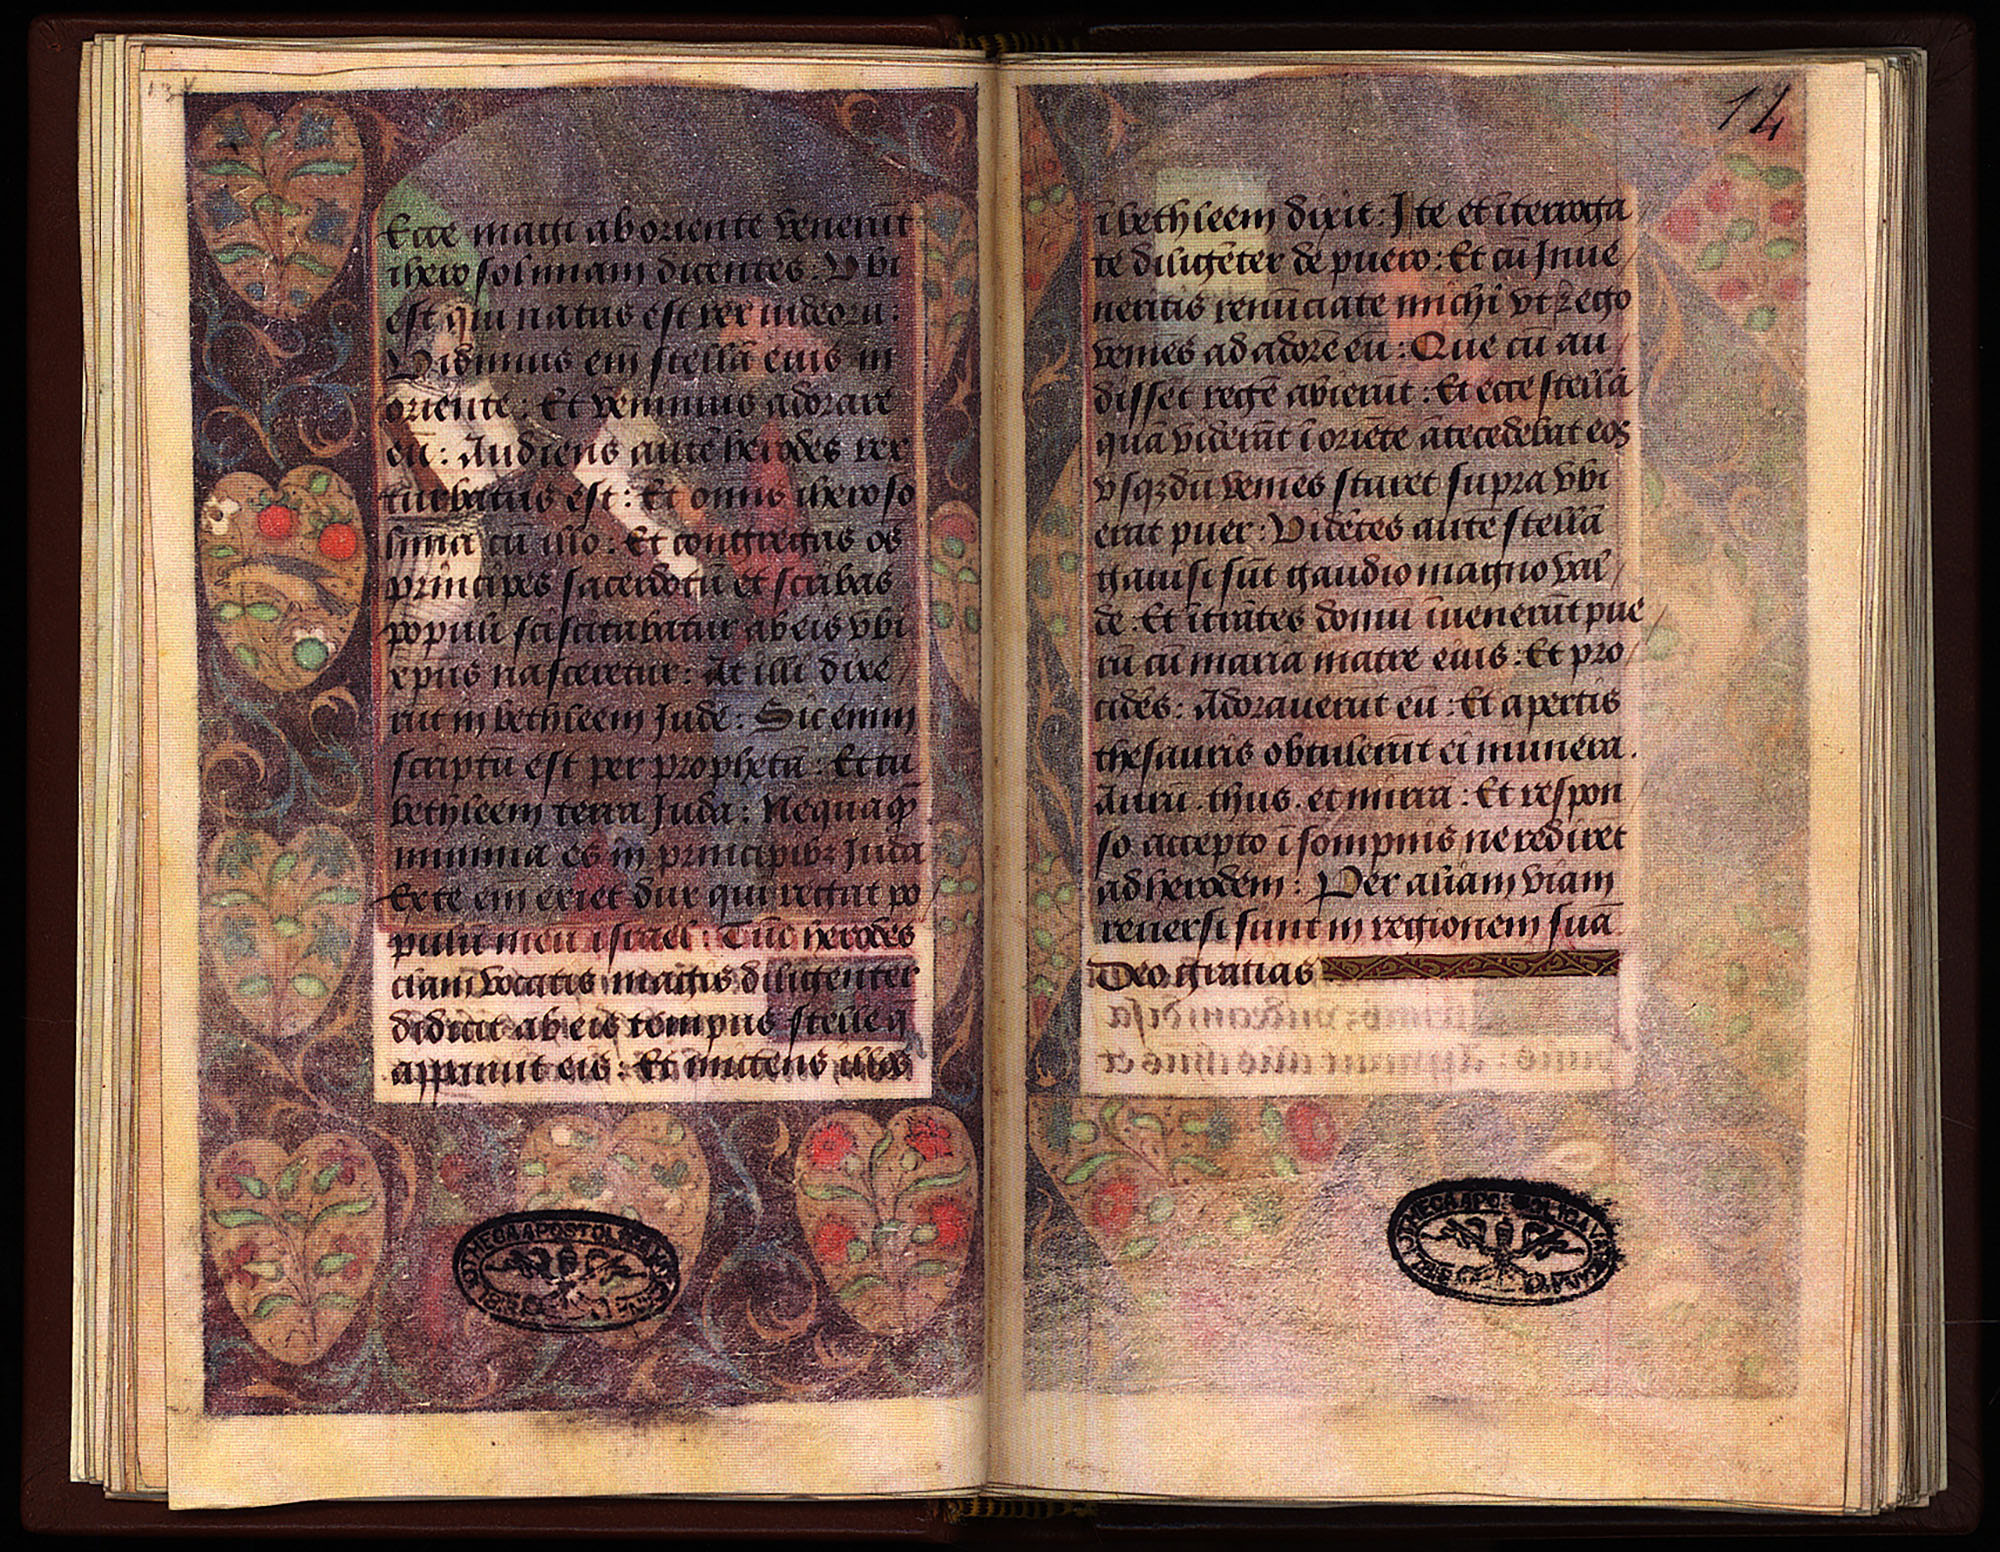 Ecce magi ab oriente venerūt
iherosolimam dicentes: Vbi
est qui natus est rex iudeoru:
Vidimus em̄ stellā eius in
oriente: Et venimus adorare
eū: Audiens autē herodes rex
turbatus est: Et omis iheroso
lima cū illo: Et congregās os̄
principes sacerdotū et scribas
populi sciscitabatur ab eis vbi
xpus nasceretur: At illi dixe
rūt in bethleem Jude: Sic enim
scriptū est per prophetā: Et tu
bethleem terra Juda: Nequaq̄
minima es in principibꝫ Juda
Ex te em̄ exiet dux qui regat po
pulū meū israel: Tūc herodes
clam vocatis magis diligenter
didicit ab eis tempus stelle q̄
apparuit eis: Et mittens illos
14
ī bethleem dixit: Ite et īterroga
te diligēter de puero: Et cū Jnue
neritis renūciate michi vt ꝛ ego
veniēs ad adorē eū: Que cū au
dissēt regē abierūt: Et ecce stella
quā viderāt ī oriēte ātecedebat eos
vsqꝫ dū veniēs staret supra vbi
erat puer: Vidētes autē stellā
gauisi sūt gaudio magno val
de: Et ītrātes domū īuenerūt pue
rū cū maria matre eius: Et pro
cidēs: Adorauerūt eū: Et apertis
thesauris obtulerūt ei munera.
Aurū. thus. et mirrā: Et respon
so accepto ī sompnis ne rediret
ad herodem: Per aliam viam
reuersi sunt in regionem suā
Deo gratias